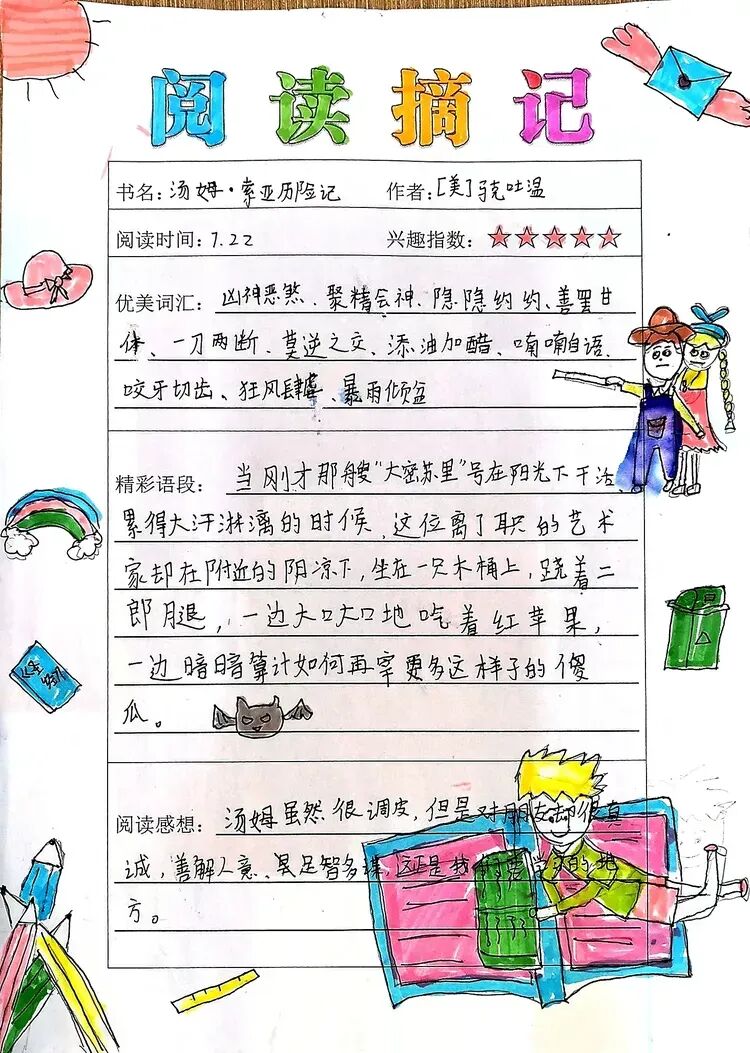 阅读摘记
书名：汤姆·索亚历险记 作者：[美]马克吐温
阅读时间：7.22 兴趣指数：★★★★★
优美词汇：凶神恶煞、聚精会神、隐隐约约、善罢甘
休、一刀两断、莫逆之交、添油加醋、喃喃自语、
咬牙切齿、狂风肆虐、暴雨倾盆
精彩语段：当刚才那艘“大密苏里”号在阳光下干活、
累得大汗淋漓的时候，这位离了职的艺术
家却在附近的阴凉下，坐在一只木桶上，跷着二
郎腿，一边大口大口地吃着红苹果，
一边暗暗算计如何再宰更多这样子的傻
瓜。
阅读感想：汤姆虽然很调皮，但是对朋友却很真
诚，善解人意、足智多谋，这正是我们要学习的地
方。